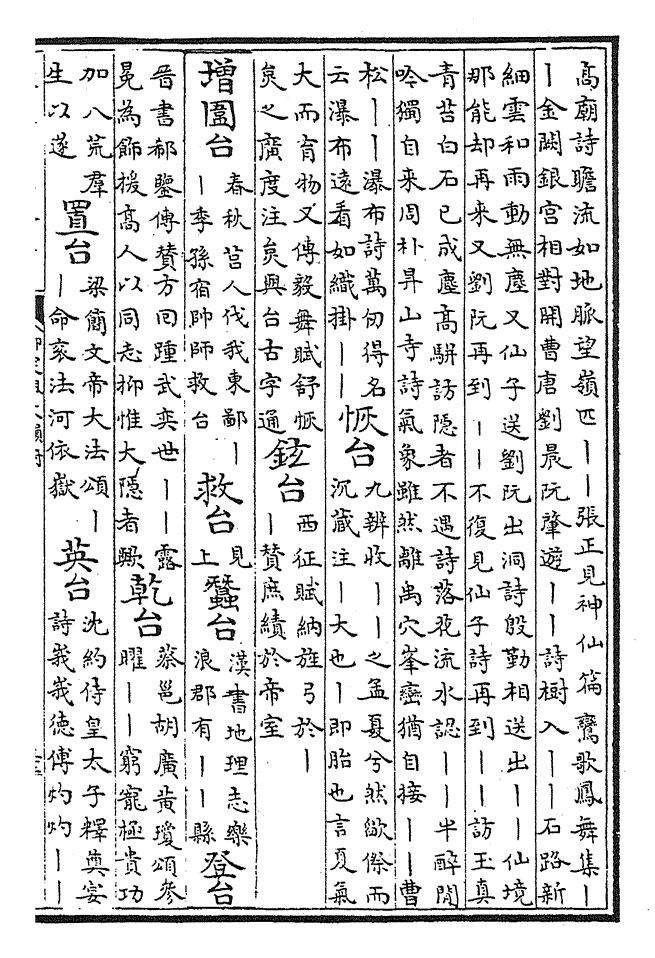 高廟詩瞻流如地脈望嶺匹｜｜張正見神仙篇鸞歌鳳舞集｜
｜金闕銀宮相對開曹唐劉晨阮肇遊｜｜詩樹入｜｜石路新
細雲和雨動無塵又仙子送劉阮出洞詩殷勤相送出｜｜仙境
那能却再来又劉阮再到｜｜不復見仙子詩再到｜｜訪玉真
青苔白石已成塵高駢訪隠者不遇詩落花流水認｜｜半醉閒
吟獨自来周朴昇山寺詩氣象雖然離禹穴峯巒猶自接｜｜曹
松｜｜瀑布詩萬仞得名
云瀑布遠看如織掛｜｜
恢台
九辨收｜｜之孟夏兮然欿傺而
沉藏注｜大也｜即胎也言夏氣
大而育物又傅毅舞賦舒恢
炱之廣度注炱與台古字通
鉉台
西征賦納旌弓於｜
｜賛庶績於帝室
增圍台
春秋莒人伐我東鄙｜
｜季孫宿帥師救台
救台
見
上
蠶台
漢書地理志樂
浪郡有｜｜縣
登台
晋書郗鑒傳賛方回踵武奕世｜｜露
冕為飾援高人以同志抑惟大隠者歟
乾台
蔡邕胡廣黄瓊頌參
曜｜｜窮寵極貴功
加八荒羣
生以遂
置台
梁簡文帝大法頌｜
｜命衮法河依嶽
英台
沈約侍皇太子釋奠宴
詩峩峩德傅灼灼｜｜